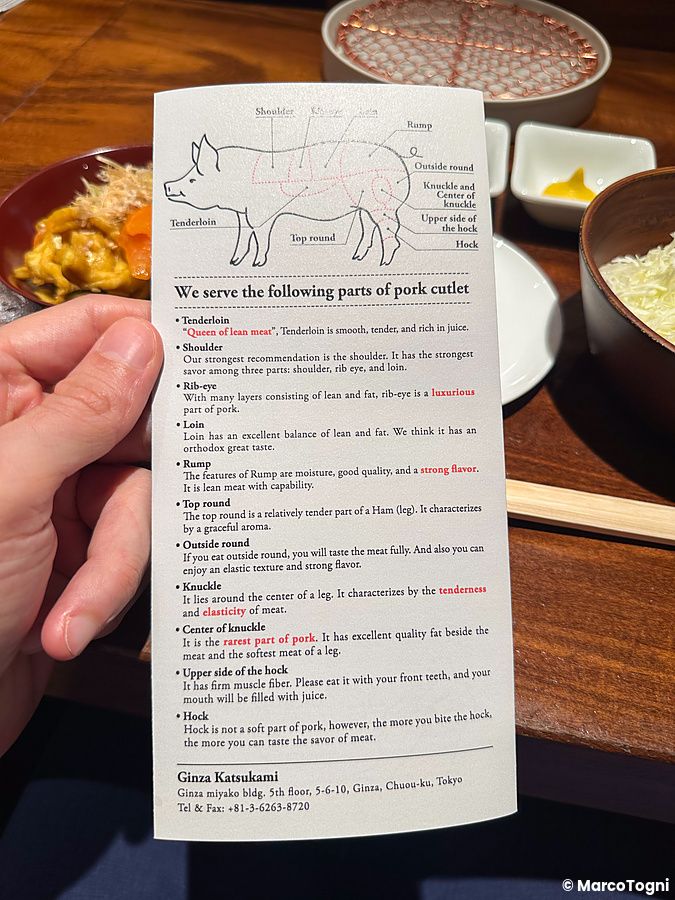 Shoulder
Rib-eye
Loin
Rump
Outside round
Knuckle and
Center of
knuckle
Upper side of
the hock
Hock
Tenderloin
Top round
We serve the following parts of pork cutlet
• Tenderloin
"Queen of lean meat", Tenderloin is smooth, tender, and rich in juice.
• Shoulder
Our strongest recommendation is the shoulder. It has the strongest
savor among three parts: shoulder, rib eye, and loin.
• Rib-eye
With many layers consisting of lean and fat, rib-eye is a luxurious
part of pork.
• Loin
Loin has an excellent balance of lean and fat. We think it has an
orthodox great taste.
• Rump
The features of Rump are moisture, good quality, and a strong flavor.
It is lean meat with capability.
• Top round
The top round is a relatively tender part of a Ham (leg). It characterizes
by a graceful aroma.
• Outside round
If you eat outside round, you will taste the meat fully. And also you can
enjoy an elastic texture and strong flavor.
• Knuckle
It lies around the center of a leg. It characterizes by the tenderness
and elasticity of meat.
• Center of knuckle
It is the rarest part of pork. It has excellent quality fat beside the
meat and the softest meat of a leg.
• Upper side of the hock
It has firm muscle fiber. Please eat it with your front teeth, and your
mouth will be filled with juice.
• Hock
Hock is not a soft part of pork, however, the more you bite the hock,
the more you can taste the savor of meat.
Ginza Katsukami
Ginza miyako bldg. 5th floor, 5-6-10, Ginza, Chuou-ku, Tokyo
Tel & Fax: +81-3-6263-8720
© MarcoTogni